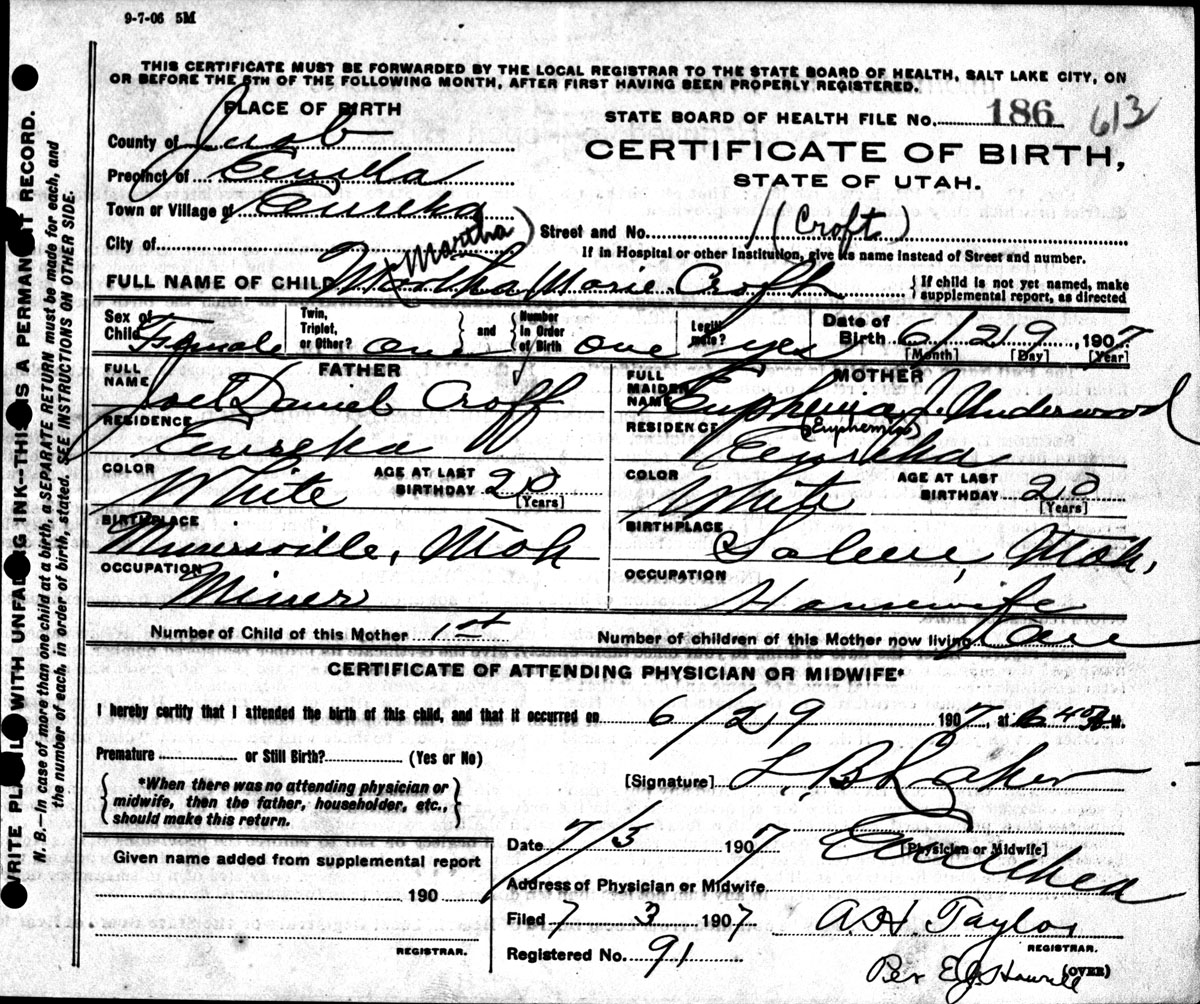 9-7-06 5M
THIS CERTIFICATE MUST BE FORWARDED BY THE LOCAL REGISTRAR TO THE STATE BOARD OF HEALTH, SALT LAKE CITY, ON
OR BEFORE THE 5TH OF THE FOLLOWING MONTH, AFTER FIRST HAVING BEEN PROPERLY REGISTERED.
WRITE PLAINLY WITH UNFADING INK—THIS IS A PERMANENT RECORD.
N.B.—In case of more than one child at a birth, a SEPARATE RETURN must be made for each, and
the number of each, in order of birth, stated. SEE INSTRUCTIONS ON OTHER SIDE.
PLACE OF BIRTH
County of Juab
Precinct of Eureka
Town or Village of Eureka
City of
STATE BOARD OF HEALTH FILE NO. 186 613
CERTIFICATE OF BIRTH,
STATE OF UTAH.
Street and No. (Croft)
If in Hospital or other Institution, give its name instead of Street and number.
Martha
FULL NAME OF CHILD Martha Marie Croft
If child is not yet named, make
supplemental report, as directed
Sex of Child Female
Twin, Triplet, or Other? one and Number in Order of Birth one
Legitimate? yes
Date of Birth 6/29, 1907
[Month] [Day] [Year]
FATHER
FULL NAME Joel Daniel Croff
RESIDENCE Eureka
COLOR White AGE AT LAST BIRTHDAY 20 [Years]
BIRTHPLACE Minersville, Utah
OCCUPATION Miner
MOTHER
FULL MAIDEN NAME Euphemia J. Underwood
(Euphemia)
RESIDENCE Eureka
COLOR White AGE AT LAST BIRTHDAY 20 [Years]
BIRTHPLACE Salem, Utah,
OCCUPATION Housewife
Number of Child of this Mother 1st Number of children of this Mother now living
CERTIFICATE OF ATTENDING PHYSICIAN OR MIDWIFE*
I hereby certify that I attended the birth of this child, and that it occurred on 6/29 1907, at 6 40 A.M.
Premature or Still Birth? (Yes or No)
*When there was no attending physician or
midwife, then the father, householder, etc.,
should make this return.
[Signature] L. B. Laker
[Physician or Midwife]
Date 7/3 1907
Address of Physician or Midwife Eureka
Filed 7 3 1907 A. H. Taylor
REGISTRAR.
Registered No. 91
Per E. J. Howell
(OVER)
Given name added from supplemental report
190
REGISTRAR.